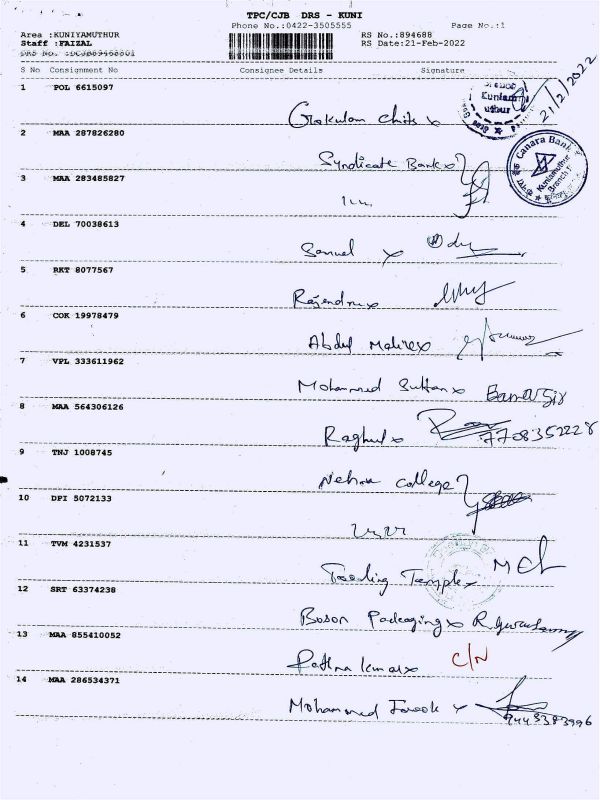 TPC/CJB DRS - KUNI
Phone No.:0422-3505555 Page No.:1
Area :KUNIYAMUTHUR RS No.:894688
Staff :FAIZAL RS Date:21-Feb-2022
DRS No. :DCJB89468801
S No Consignment No Consignee Details Signature
1 POL 6615097
Gokulam Chits x
Kuniam
uthur
21/2/2022
2 MAA 287826280
Syndicate Bank x
Canara Bank
Kuniamuthur
Branch
3 MAA 283485827
4 DEL 70038613
Samuel x
5 RKT 8077567
Rajendran x
6 COK 19978479
Abdul Malik x
7 VPL 333611962
Mohammed Sultan x
8 MAA 564306126
Raghul x 7708352228
9 TNJ 1008745
Nehru College
10 DPI 5072133
11 TVM 4231537
Temple x
12 SRT 63374238
Boson Packaging x
13 MAA 855410052
Rathna kumar x C/N
14 MAA 286534371
Mohammed Farook x
9443383996